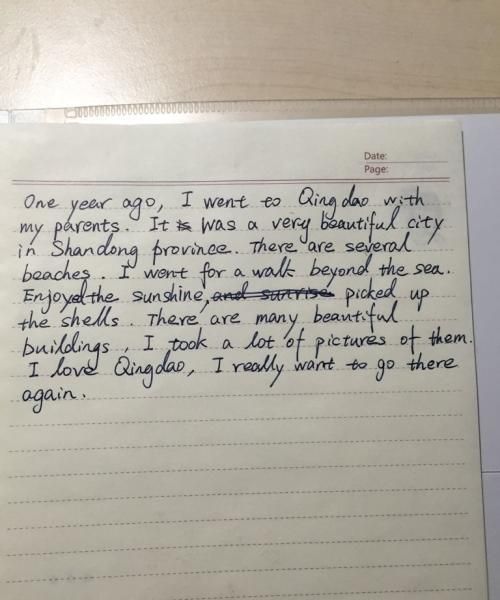 Date:
Page:
One year ago, I went to Qingdao with
my parents. It is was a very beautiful city
in Shandong province. There are several
beaches. I went for a walk beyond the sea.
Enjoyed the sunshine, and sunrise picked up
the shells. There are many beautiful
buildings, I took a lot of pictures of them.
I love Qingdao, I really want to go there
again.